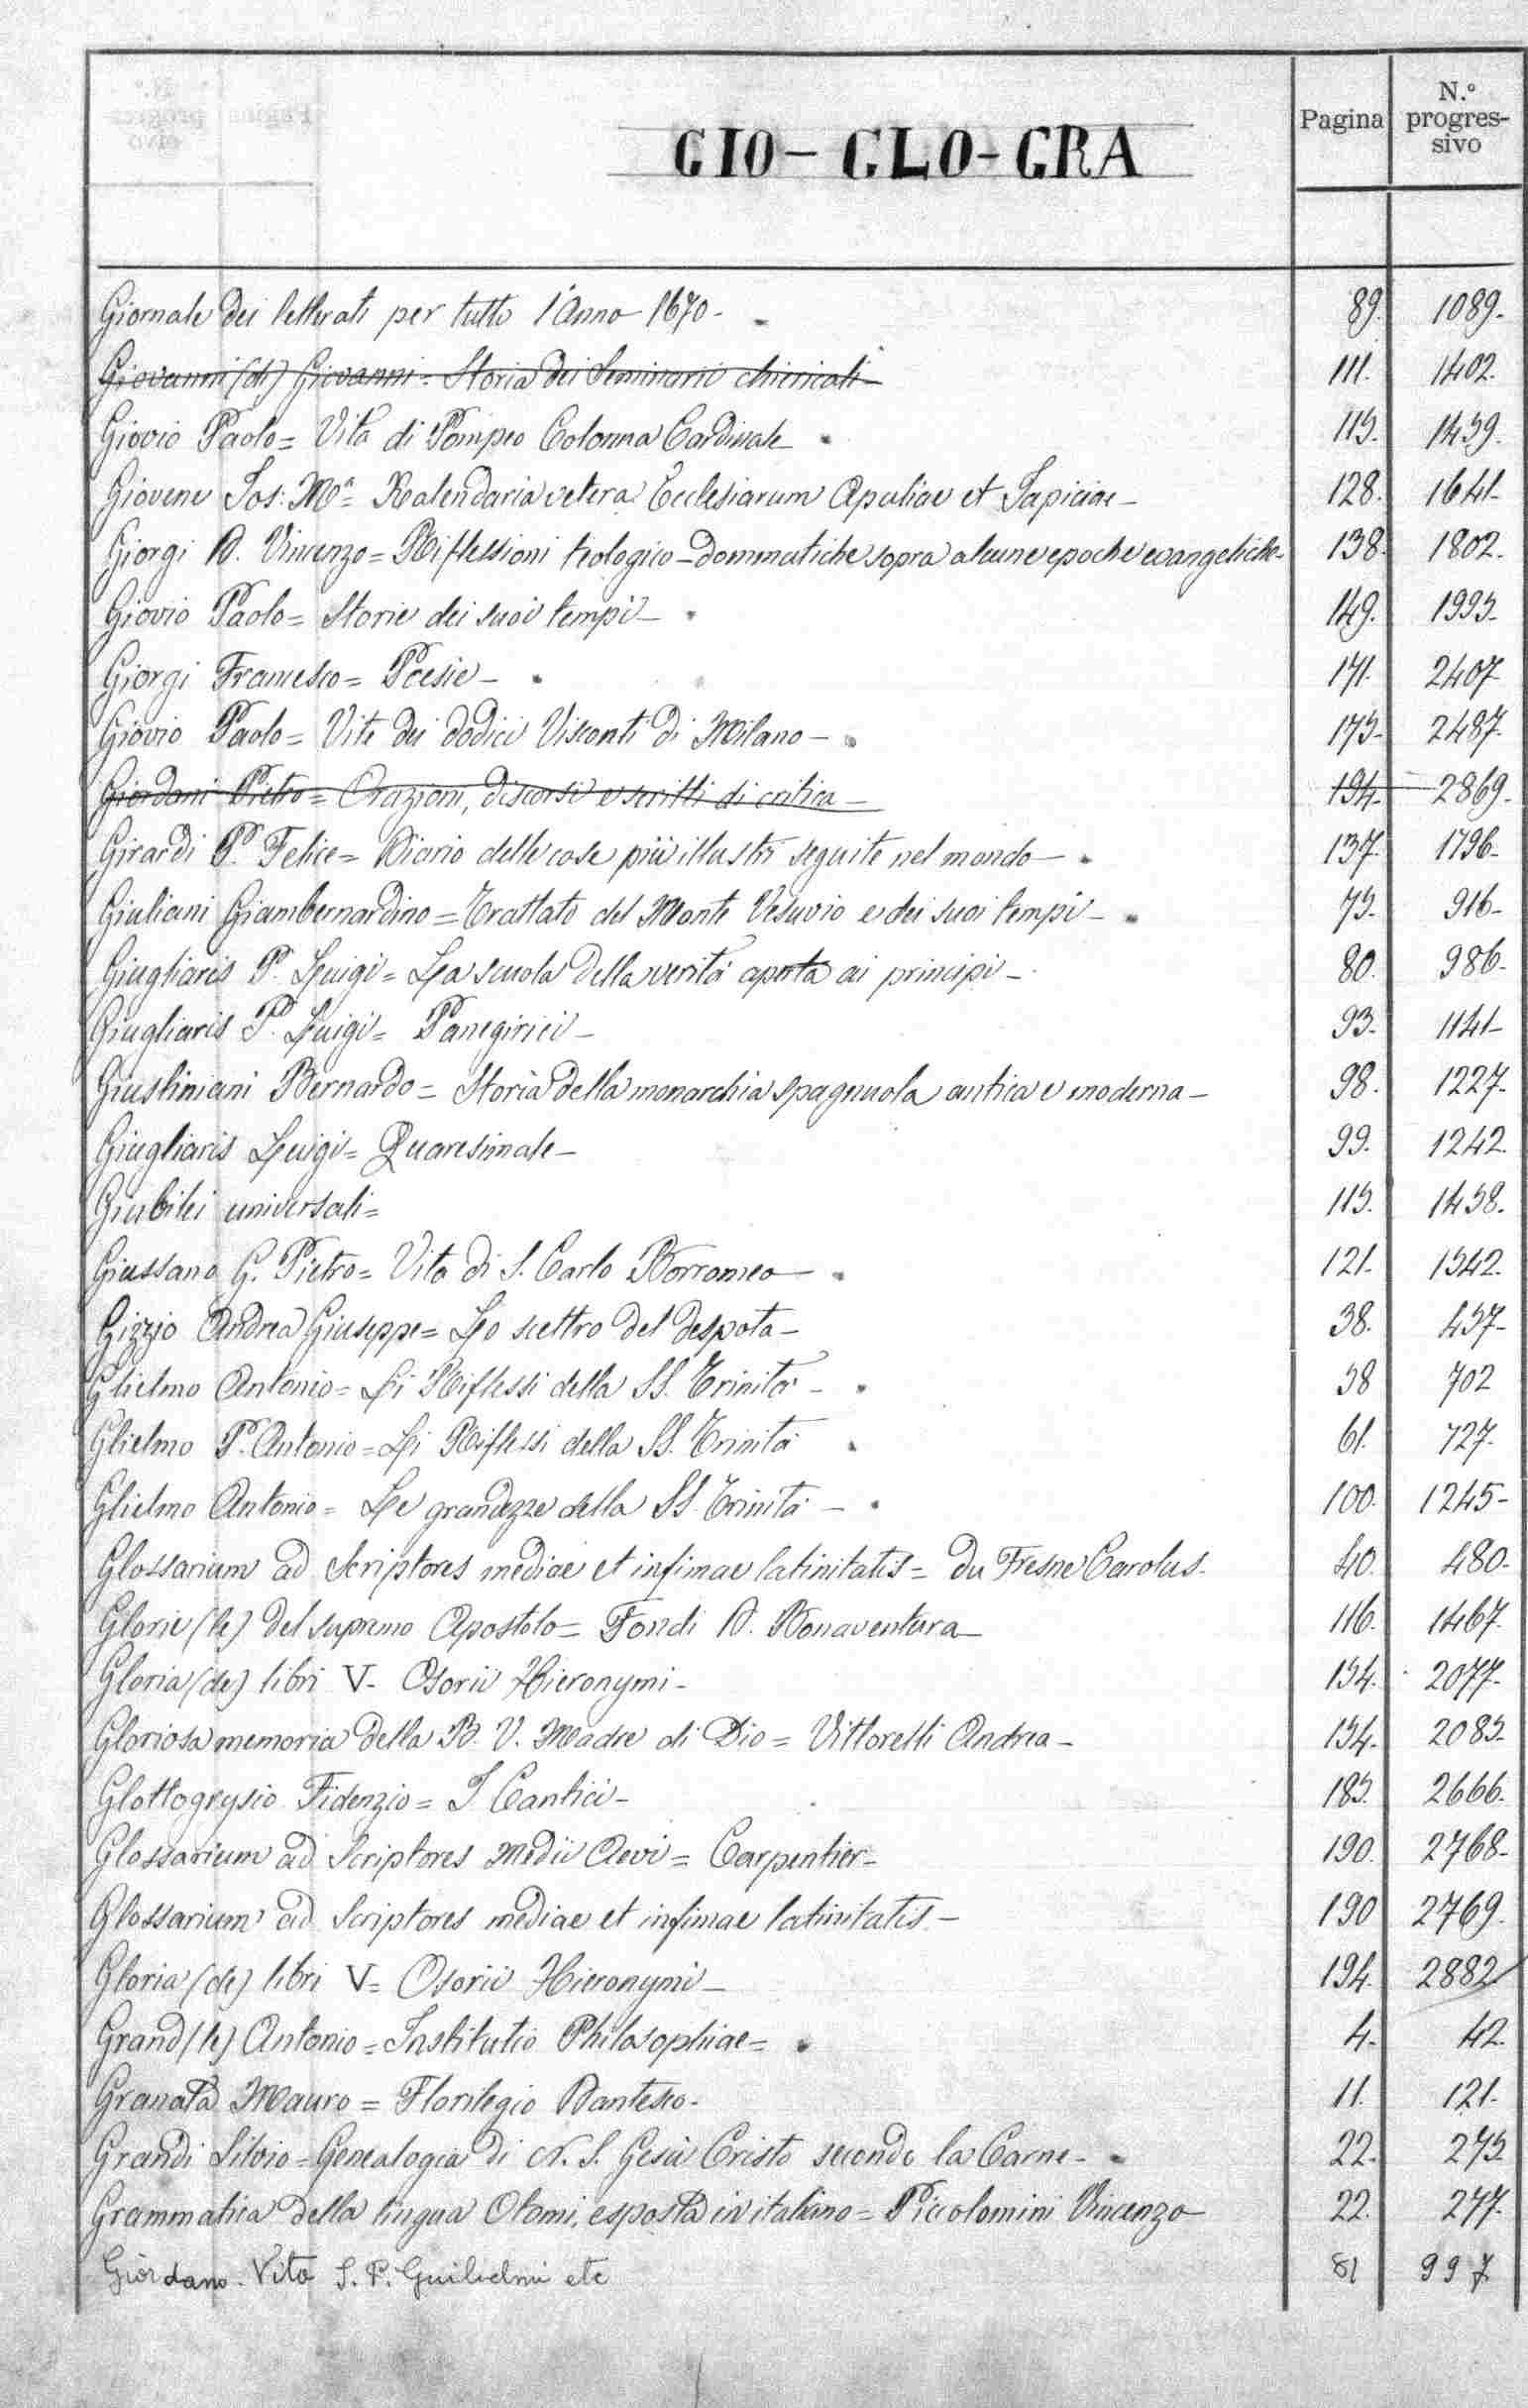 GIO - GLO - GRA Pagina N.º progres-sivo
Giornale dei letterati per tutto l'Anno 1670- 89. 1089-
Giovanni (di) Giovanni = Storia dei Seminarii chiericali 111. 1402.
Giovio Paolo = Vita di Pompeo Colonna Cardinale 113. 1439.
Giovene Jos: Mª = Kalendaria vetera Ecclesiarum Apuliae et Japiciae - 128. 1641-
Giorgi D. Vincenzo = Riflessioni teologico-dommatiche sopra alcune epoche evangeliche- 138. 1802.
Giovio Paolo = Storie dei suoi tempi - 149. 1993-
Giorgi Francesco = Poesie - 171. 2407
Giovio Paolo = Vite dei dodici Visconti di Milano - 175- 2487.
Giordani Pietro = Orazioni, discorsi e scritti di critica - 194- 2869.
Girardi P. Felice = Diario delle cose più illustri seguite nel mondo - 137. 1796-
Giuliani Giambernardino = Trattato del Monte Vesuvio e dei suoi tempi - 75- 916-
Giugliaris P. Luigi = La scuola della verità aperta ai principi - 80. 986-
Giugliaris P. Luigi = Panegirici - 93- 1141-
Giustiniani Bernardo = Storia della monarchia spagnuola antica e moderna - 98. 1227-
Giugliaris Luigi = Quaresimale - 99. 1242.
Giubilei universali = 115. 1458.
Giussano G. Pietro = Vita di S. Carlo Borromeo - 121- 1542.
Gizzio Andrea Giuseppe = Lo scettro del despota - 38. 457-
Glielmo Antonio = Li Riflessi della SS. Trinità - 58 702
Glielmo P. Antonio = Li Riflessi della SS. Trinità 61. 727.
Glielmo Antonio = Le grandezze della SS. Trinità - 100. 1245-
Glossarium ad Scriptores mediae et infimae latinitatis = du Fresne Carolus- 40. 480-
Glorie (le) del supremo Apostolo = Fondi D. Bonaventura - 116. 1467.
Gloria (de) libri V - Osorii Hieronymi - 154. 2077-
Gloriosa memoria della B. V. Madre di Dio = Vittorelli Andrea - 154. 2083-
Glottogrysio Fidenzio = I Cantici - 183. 2666.
Glossarium ad Scriptores Medii Aevi = Carpentier - 190. 2768-
Glossarium ad Scriptores mediae et infimae latinitatis - 190 2769.
Gloria (de) libri V = Osorii Hieronymi - 194. 2882
Grand (le) Antonio = Institutio Philosophiae = 4. 42.
Granata Mauro = Florilegio Dantesco- 11. 121-
Grandi Silvio = Genealogia di N. S. Gesù Cristo secondo la Carne - 22. 275-
Grammatica della lingua Otomi, esposta in italiano = Piccolomini Vincenzo 22. 277-
Giordano. Vita S. P. Guilielmi etc 81 997